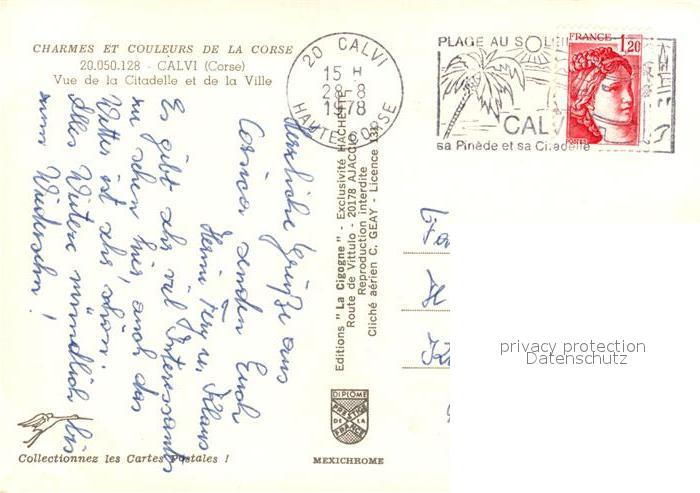 CHARMES ET COULEURS DE LA CORSE
20.050.128 - CALVI (Corse)
Vue de la Citadelle et de la Ville
20 CALVI
15 H
28-8
1978
HAUTE-CORSE
PLAGE AU SOLEIL
CALVI
sa Pinède et sa Citadelle
FRANCE
1,20
POSTES
Herzliche Grüße aus
Corsica senden Euch
Klaus
Es gibt sehr viel Interessantes
zu sehen hier, auch das
Wetter ist sehr schön.
Alles Weitere mündlich bis
zum Wiedersehn!
Editions "La Cigogne" - Exclusivité HACHETTE
Route de Vittulo - 20178 AJACCIO
Reproduction interdite
Cliché aérien C. GEAY - Licence 131
privacy protection
Datenschutz
DIPLOME
PRESTIGE
DE LA
FRANCE
Collectionnez les Cartes Postales !
MEXICHROME